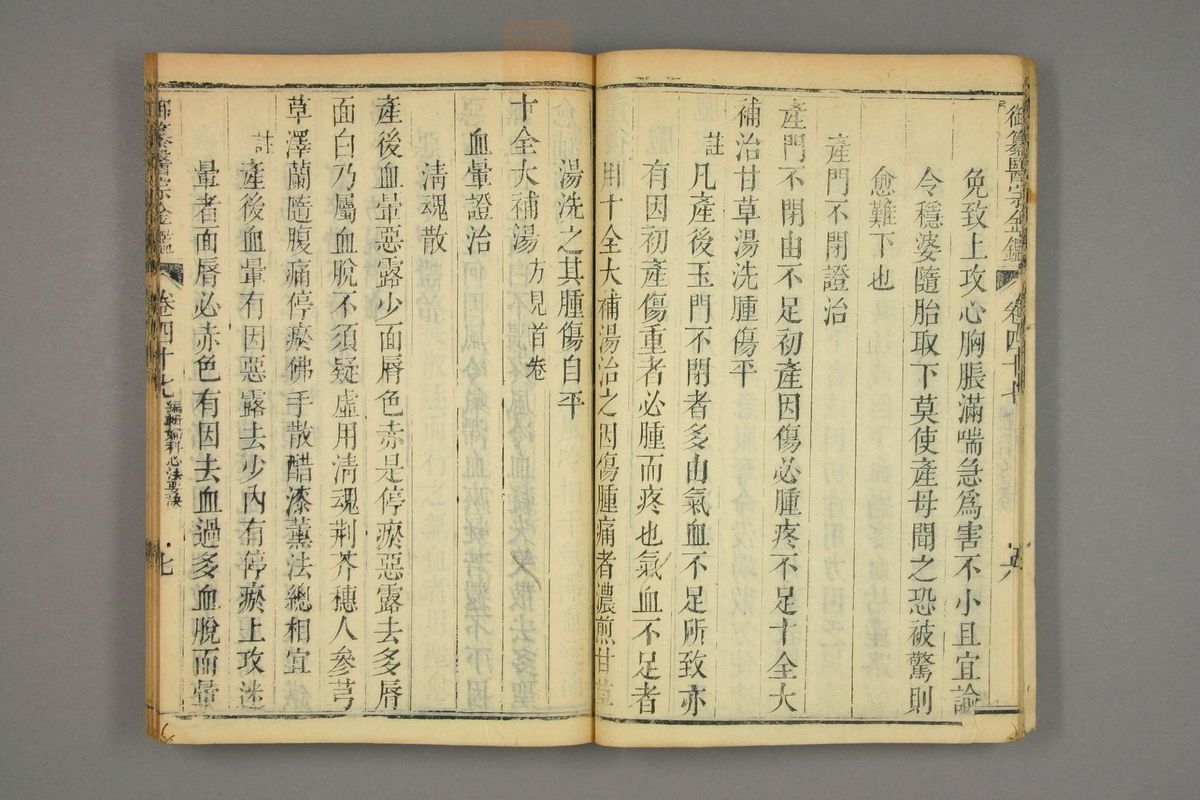 御纂醫宗金鑑 卷四十七
免致上攻心胸脹滿喘急爲害不小且宜諭
令穩婆隨胎取下莫使產母聞之恐被驚則
愈難下也
產門不閉證治
產門不閉由不足初產因傷必腫疼不足十全大
補治甘草湯洗腫傷平
註 凡產後玉門不閉者多由氣血不足所致亦
有因初產傷重者必腫而疼也氣血不足者
用十全大補湯治之因傷腫痛者濃煎甘草
湯洗之其腫傷自平
十全大補湯 方見首卷
血暈證治
清魂散
產後血暈惡露少面脣色赤是停瘀惡露去多脣
面白乃屬血脫不須疑虛用清魂荆芥穗人參芎
草澤蘭隨腹痛停瘀佛手散醋漆薰法總相宜
註 產後血暈有因惡露去少內有停瘀上攻迷
暈者面脣必赤色有因去血過多血脫而暈
御纂醫宗金鑑 卷四十七 編輯婦科心法要訣 七